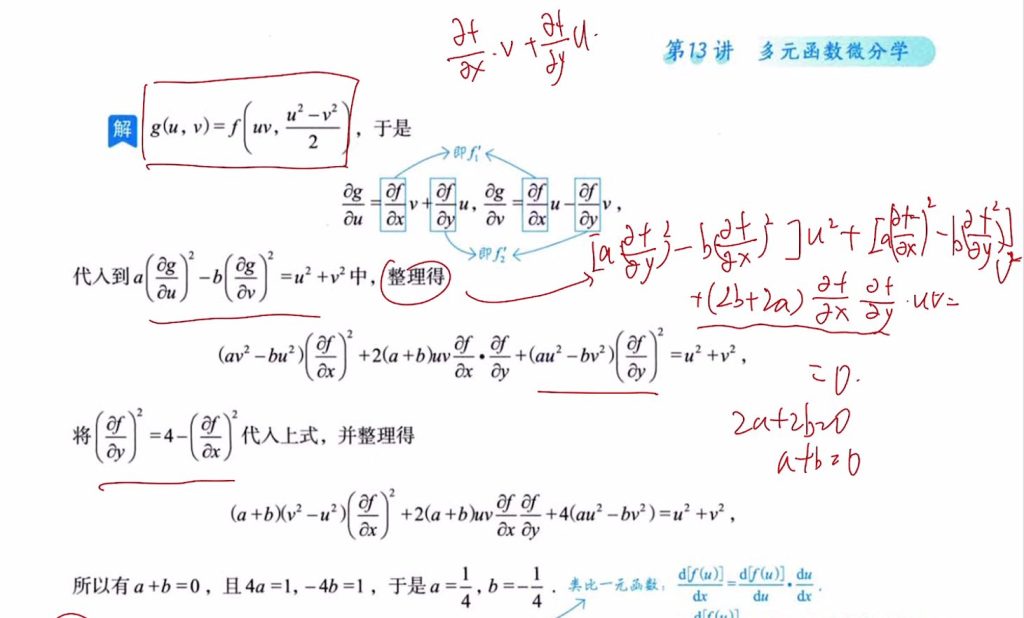 ∂f/∂x · v + ∂f/∂y u.
第13讲 多元函数微分学
解 g(u, v)=f(uv, (u²-v²)/2), 于是
即f₁′
∂g/∂u = ∂f/∂x v + ∂f/∂y u, ∂g/∂v = ∂f/∂x u - ∂f/∂y v,
即f₂′
[a(∂f/∂y)² - b(∂f/∂x)²]u² + [a(∂f/∂x)² - b(∂f/∂y)²]v²
代入到a(∂g/∂u)² - b(∂g/∂v)² = u²+v²中, 整理得
+(2b+2a) ∂f/∂x ∂f/∂y · uv=
(av²-bu²)(∂f/∂x)² + 2(a+b)uv ∂f/∂x · ∂f/∂y + (au²-bv²)(∂f/∂y)² = u²+v²,
=0.
2a+2b=0
将(∂f/∂y)² = 4-(∂f/∂x)² 代入上式, 并整理得
a+b=0
(a+b)(v²-u²)(∂f/∂x)² + 2(a+b)uv ∂f/∂x ∂f/∂y + 4(au²-bv²) = u²+v²,
所以有a+b=0, 且4a=1, -4b=1, 于是a=1/4, b=-1/4.
类比一元函数: d[f(u)]/dx = d[f(u)]/du · du/dx.
d[f(u)]